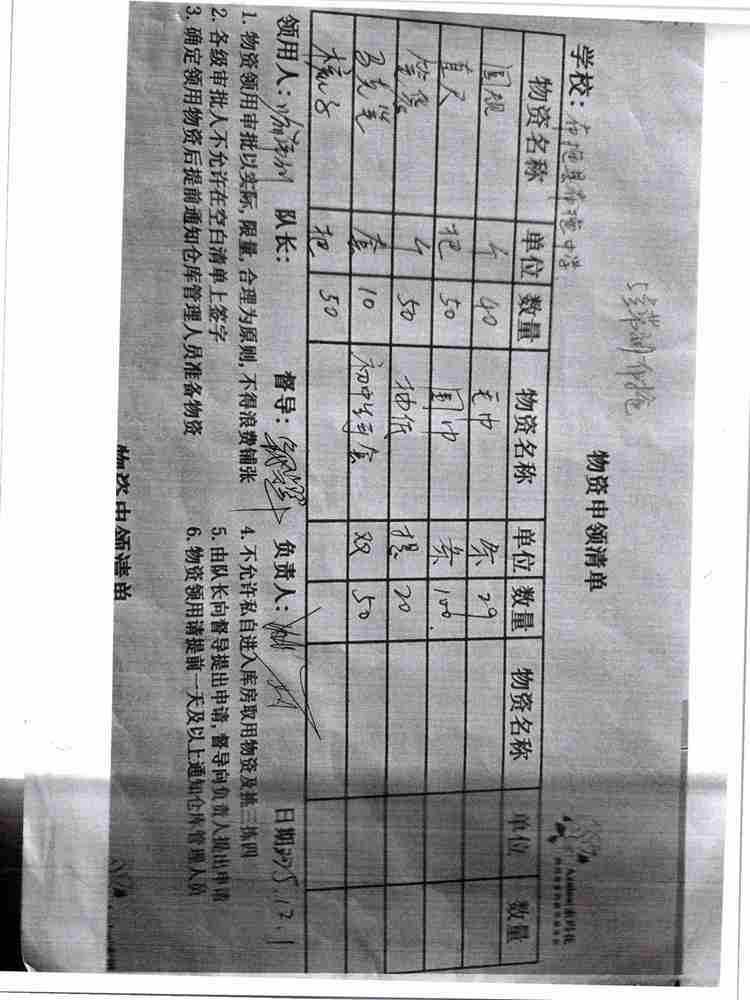 物资申领清单
学校：布拖县布拖中学
物资名称 单位 数量 物资名称 单位 数量 物资名称 单位 数量
圆规 个 40 毛巾 条 29
直尺 把 50 围巾 条 100
个 50 抽纸 提 20
马克笔 套 10 初中生 双 50
把 50
领用人： 队长： 督导： 负责人： 日期2025.12.1
1. 物资领用审批以实际, 限量, 合理为原则, 不得浪费铺张
2. 各级审批人不允许在空白清单上签字
3. 确定领用物资后提前通知仓库管理人员准备物资
4. 不允许私自进入库房取用物资及推三拣四
5. 由队长向督导提出申请, 督导向负责人提出申请
6. 物资领用请提前一天及以上通知仓库管理人员
物资申领清单